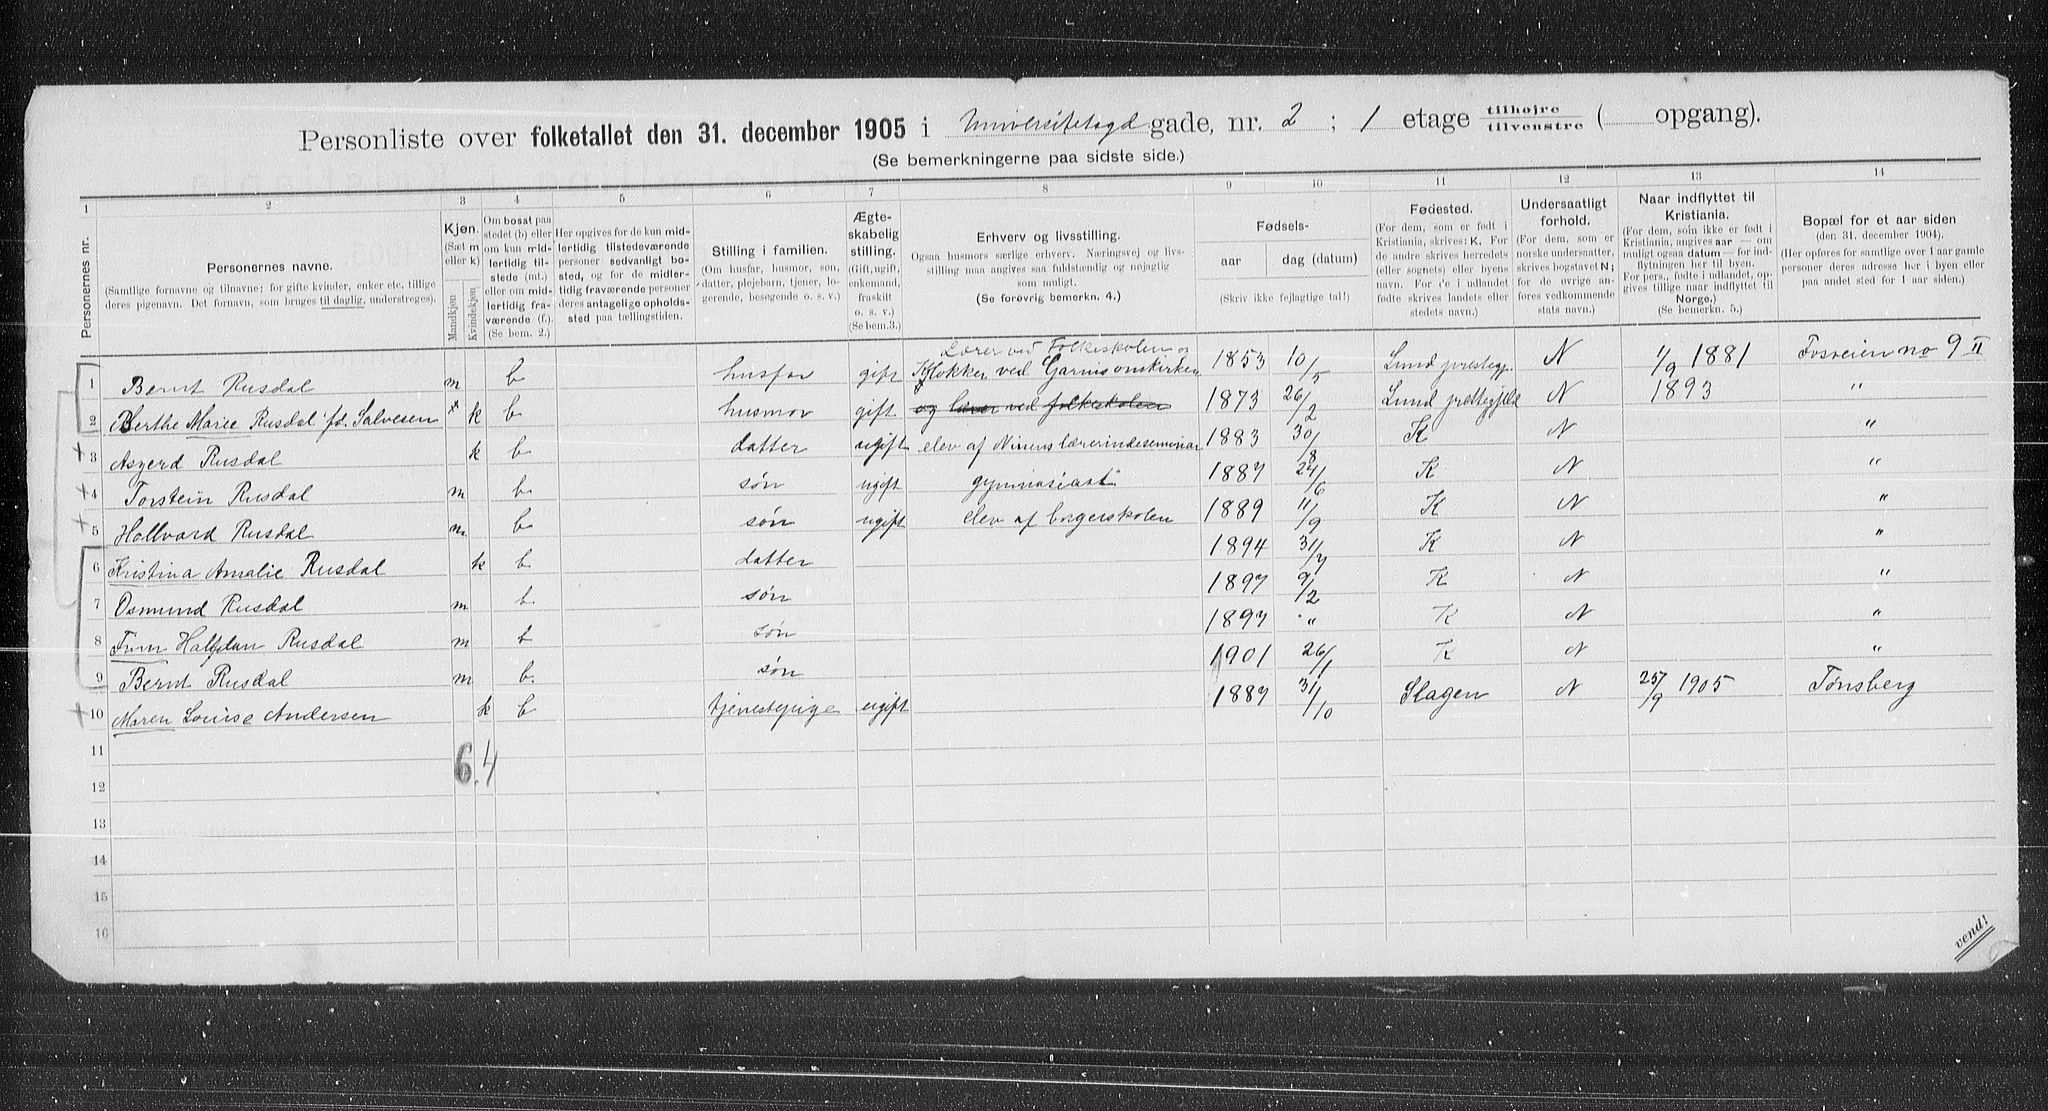 Personliste over folketallet den 31. december 1905 i Universitetsgd gade, nr. 2 ; 1 etage tilhøjre / tilvenstre ( opgang).
(Se bemerkningerne paa sidste side.)
1 2 3 4 5 6 7 8 9 10 11 12 13 14
Personernes nr.
Personernes navne.
(Samtlige fornavne og tilnavne; for gifte kvinder, enker etc. tillige
deres pigenavn. Det fornavn, som bruges til daglig, understreges).
Kjøn.
(Sæt m
eller k)
Mandkjøn
Kvindekjøn
Om bosat paa
stedet (b) eller
om kun mid-
lertidig til-
stede (mt.)
eller om mid-
lertidig fra-
værende (f.).
(Se bem. 2.)
Her opgives for de kun mid-
lertidig tilstedeværende
personer sedvanligt bo-
sted, og for de midler-
tidig fraværende personer
deres antagelige opholds-
sted paa tællingstiden.
Stilling i familien.
(Om husfar, husmor, søn,
datter, plejebarn, tjener, lo-
gerende, besøgende o. s. v.)
Ægte-
skabelig
stilling.
(Gift, ugift,
enkemand,
fraskilt
o. s. v.)
(Se bem.3.)
Erhverv og livsstilling.
Ogsaa husmors særlige erhverv. Næringsvej og livs-
stilling maa angives saa fuldstændig og nøjagtig
som muligt.
(Se forøvrig bemerkn. 4.)
Fødsels-
aar dag (datum)
(Skriv ikke fejlagtige tal!)
Fødested.
(For dem, som er født i
Kristiania, skrives: K. For
de andre skrives herredets
(eller sognets) eller byens
navn. For de i udlandet
fødte skrives landets eller
stedets navn.)
Undersaatligt
forhold.
(For dem, som er
norske undersaatter,
skrives bogstavet N;
for de øvrige an-
føres vedkommende
stats navn.)
Naar indflyttet til
Kristiania.
(For dem, som ikke er født i
Kristiania, angives aar — om
muligt ogsaa datum — for ind-
flytningen her til byen.
For pers., fødte i udlandet, op-
gives tillige naar indflyttet til
Norge.)
(Se bemerkn. 5.)
Bopæl for et aar siden
(den 31. december 1904).
(Her opføres for samtlige over 1 aar gamle
personer deres adresse her i byen eller
paa andet sted for 1 aar siden.)
Lærer ved Folkeskolen og
1 Bernt Rusdal m b husfar gift Klokker ved Garnisonskirken 1853 10/5 Lund prestegj. N 1/9 1881 Fosveien no 9 II
2 Berthe Marie Rusdal fd. Salvesen k b husmor gift og lærer ved folkeskolen 1873 26/2 Lund prestegjeld N 1893 "
3 Asgerd Rusdal k b datter ugift elev af Nissens lærerindeseminar 1883 30/8 K N "
4 Torstein Rusdal m b søn ugift gymnasiast 1887 24/6 K N "
5 Hallvard Rusdal m b søn ugift elev af borgerskolen 1889 11/9 K N "
6 Kristina Amalie Rusdal k b datter 1894 31/7 K N "
7 Osmund Rusdal m b søn 1897 9/2 K N "
8 Finn Halfdan Rusdal m b søn 1897 " K N "
9 Bernt Rusdal m b. søn 1901 26/1 K N "
10 Maren Louise Andersen k b tjenestepige ugift 1887 31/10 Slagen N 25/9 1905 Tønsberg
11
6.4
12
13
14
15
16
vend!